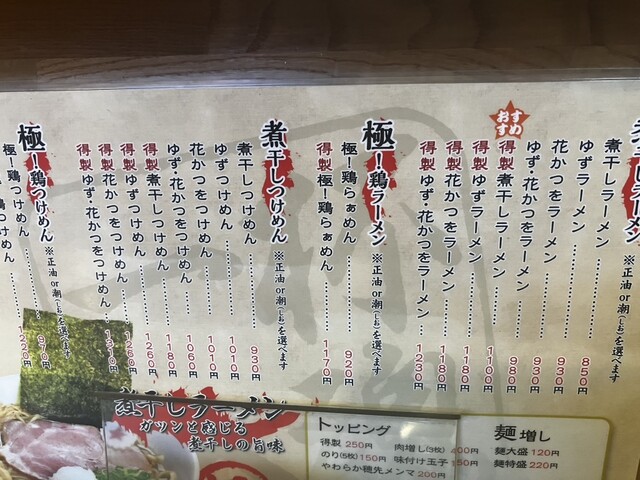 煮干しラーメン ※正油 or 潮(しお)を選べます
煮干しラーメン…… 850円
ゆずラーメン…… 930円
花かつをラーメン…… 930円
ゆず・花かつをラーメン…… 980円
おすすめ
得製煮干しラーメン…… 1100円
得製ゆずラーメン…… 1180円
得製花かつをラーメン…… 1180円
得製ゆず・花かつをラーメン…… 1230円
極!鶏ラーメン ※正油 or 潮(しお)を選べます
極!鶏らぁめん…… 920円
得製極!鶏らぁめん…… 1170円
煮干しつけめん ※正油 or 潮(しお)を選べます
煮干しつけめん…… 930円
ゆずつけめん…… 1010円
花かつをつけめん…… 1010円
ゆず・花かつをつけめん…… 1060円
得製煮干しつけめん…… 1180円
得製ゆずつけめん…… 1260円
得製花かつをつけめん…… 1260円
得製ゆず・花かつをつけめん…… 1310円
極!鶏つけめん ※正油 or 潮(しお)を選べます
極!鶏つけめん…… 970円
極!鶏つけめん…… 1220円
煮干しラーメン
ガツンと感じる
煮干しの旨味
トッピング
得製 250円 肉増し(3枚) 400円
のり(5枚) 150円 味付け玉子 150円
やわらか穂先メンマ 200円
麺増し
麺大盛 120円
麺特盛 220円